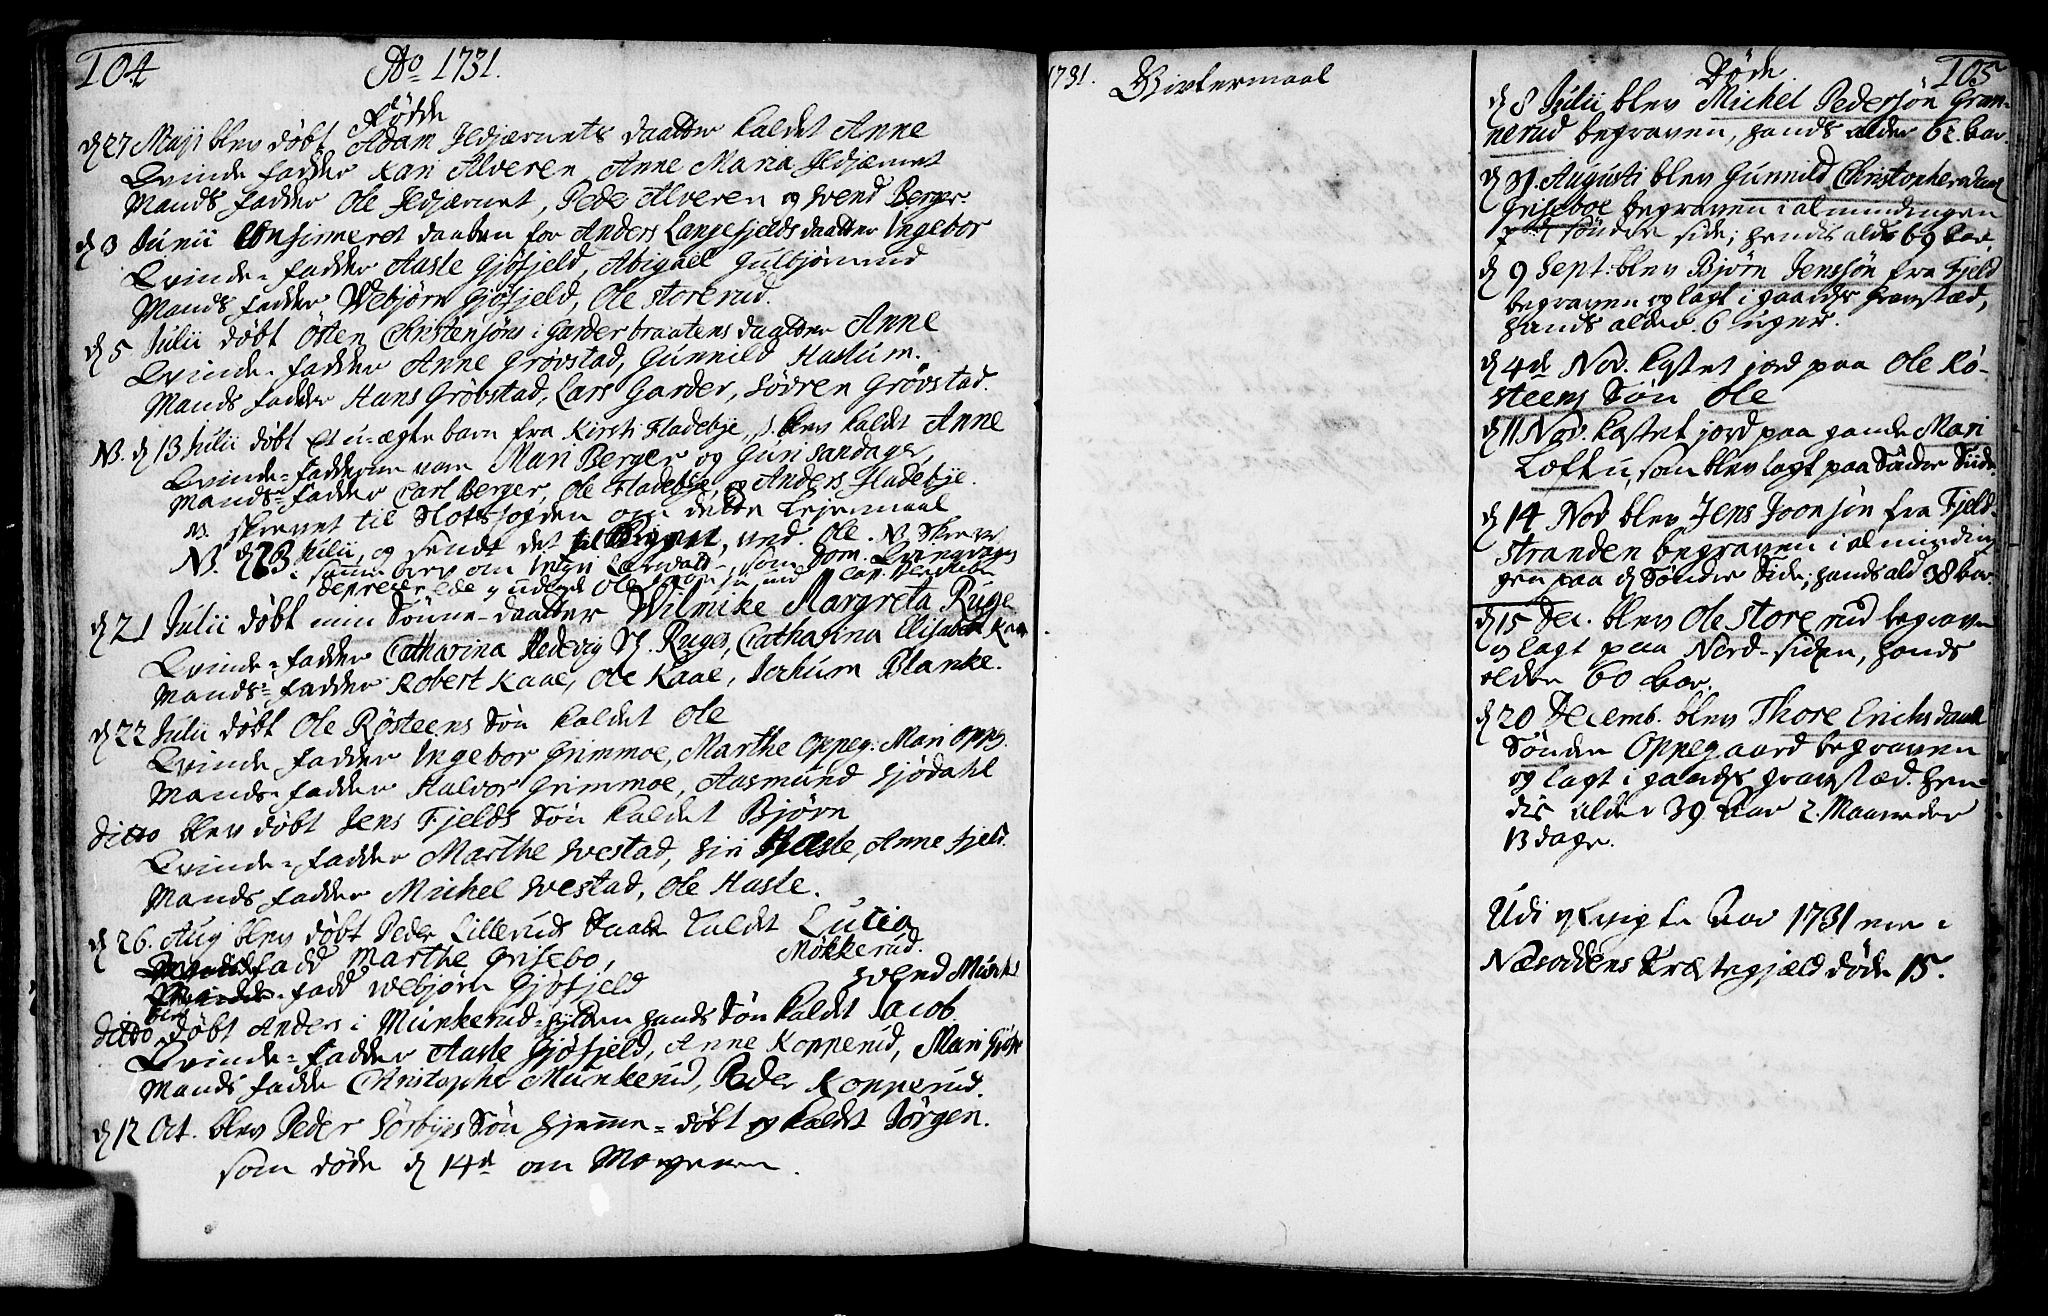 104
Ao 1731.
Fødde
d 27 Maji blev døbt Adam Jldjærnets daatter kaldet Anne
Qvinde fadder Kari Alveren, Anne Maria Jldjærnet
Mands fadder Ole Jldjærnet, Peder Alveren og Svend Berger.
d 3 Junii Confirmeret daaben for Anders Langefjelds daatter Ingebor
Qvinde-fadder Aasle Gjøfjeld, Abigael Gulbjørnrud
Mands fadder Webjørn Gjøfjeld, Ole Storerud.
d 5 Julii døbt Østen Christensøns i Garder braatens daatter Anne
Qvinde-fadder Anne Grøvstad, Gunnild Haslum.
Mands fadder Hans Grøbstad, Lars Garder, Søvren Grøvstad.
N. d 13 Julii døbt Et u-ægte barn fra Kirsti Fladebye, blev kaldet Anne
Qvinde-fadderne vare Mari Berger og Guri Sandager,
Mands-fadder Carl Berger, Ole Fladebye, og Anders Fladebye.
N. skrevet til Slotsfogden om dette Lejermaal
N. d 23 Julii, og sendt det ved Ole. N. Skrev
samme brev om
d 21 Julii døbt min Sønne-daatter Wilmike Margreta Ruge
Qvinde-fadder Catharina Hedevig Sl. Ruges, Catharina Elisabeth Kaae
Mands-fadder Robert Kaae, Ole Kaae, Jochum Blanke.
d 22 Julii døbt Ole Røsteens Søn kaldet Ole
Qvinde fadder Ingebor Grimmoe, Marthe Oppeg. Mari Oppg.
Mands-fadder Halvor Grimmoe, Aasmund Sjødahl
Ditto blev døbt Jens Fjelds Søn kaldet Bjørn
Qvinde-fadder Marthe Westad, Siri Hasle, Anne Fjeld.
Mands fadder Michel Westad, Ole Hasle.
d 26. Aug blev døbt Peder Lillerud Daatter kaldet Lucia
fadd Marthe Grisebo, Møkkerud.
fadd Webjørn Gjøfjeld Svend
Ditto blev døbt Anders i Munkerud-hytten hands Søn kaldet Jacob.
Qvinde-fadder Aasle Gjøfjeld, Anne Kopperud, Mari
Mands fadder Christopher Munkerud, Peder Kopperud.
d 12 Oct. blev Peder Sørbyes Søn hjemme-døbt og kaldet Jørgen.
som døde d 14d om Morgenen.
1731. Givtermaal
Døde. 105
d 8 Julii blev Michel Pedersøn Gran-
nerud begraven, hands alder 62. aar.
d 31. Augusti blev Gunnild Christophersdaat
Griseboe begraven i alminding en
sønder side; hendis alder 69 aar.
d 9 Sept: blev Bjørn Jenssøn fra Fjeld
begraven og lagt i gaards gravstæd,
hands alder 6 uger.
d 4d Nov. kastet jord paa Ole Rø-
steens Søn Ole
d 11 Nov. kastet jord paa gamle Mari
Loftu, som blev lagt paa Sønder Siide
d 14 Nov blev Jens Joonsøn fra Fjeld-
stranden begraven i almindin-
gen paa d Sønder Side; hands ald 38 aar.
d 15 Dec. blev Ole Storerud begraven
og lagt paa Nord-siden, hands
alder 60 aar.
d 20 Decemb. blev Thore Erichsdaatt
Sønden Oppegaard begraven
og lagt i gaards gravstæd. hen-
dis alder 39 aar 2. Maaneder
13 dage.
Udi Aar 1731 ere i
Næsoddens Præstegjæld døde 15.